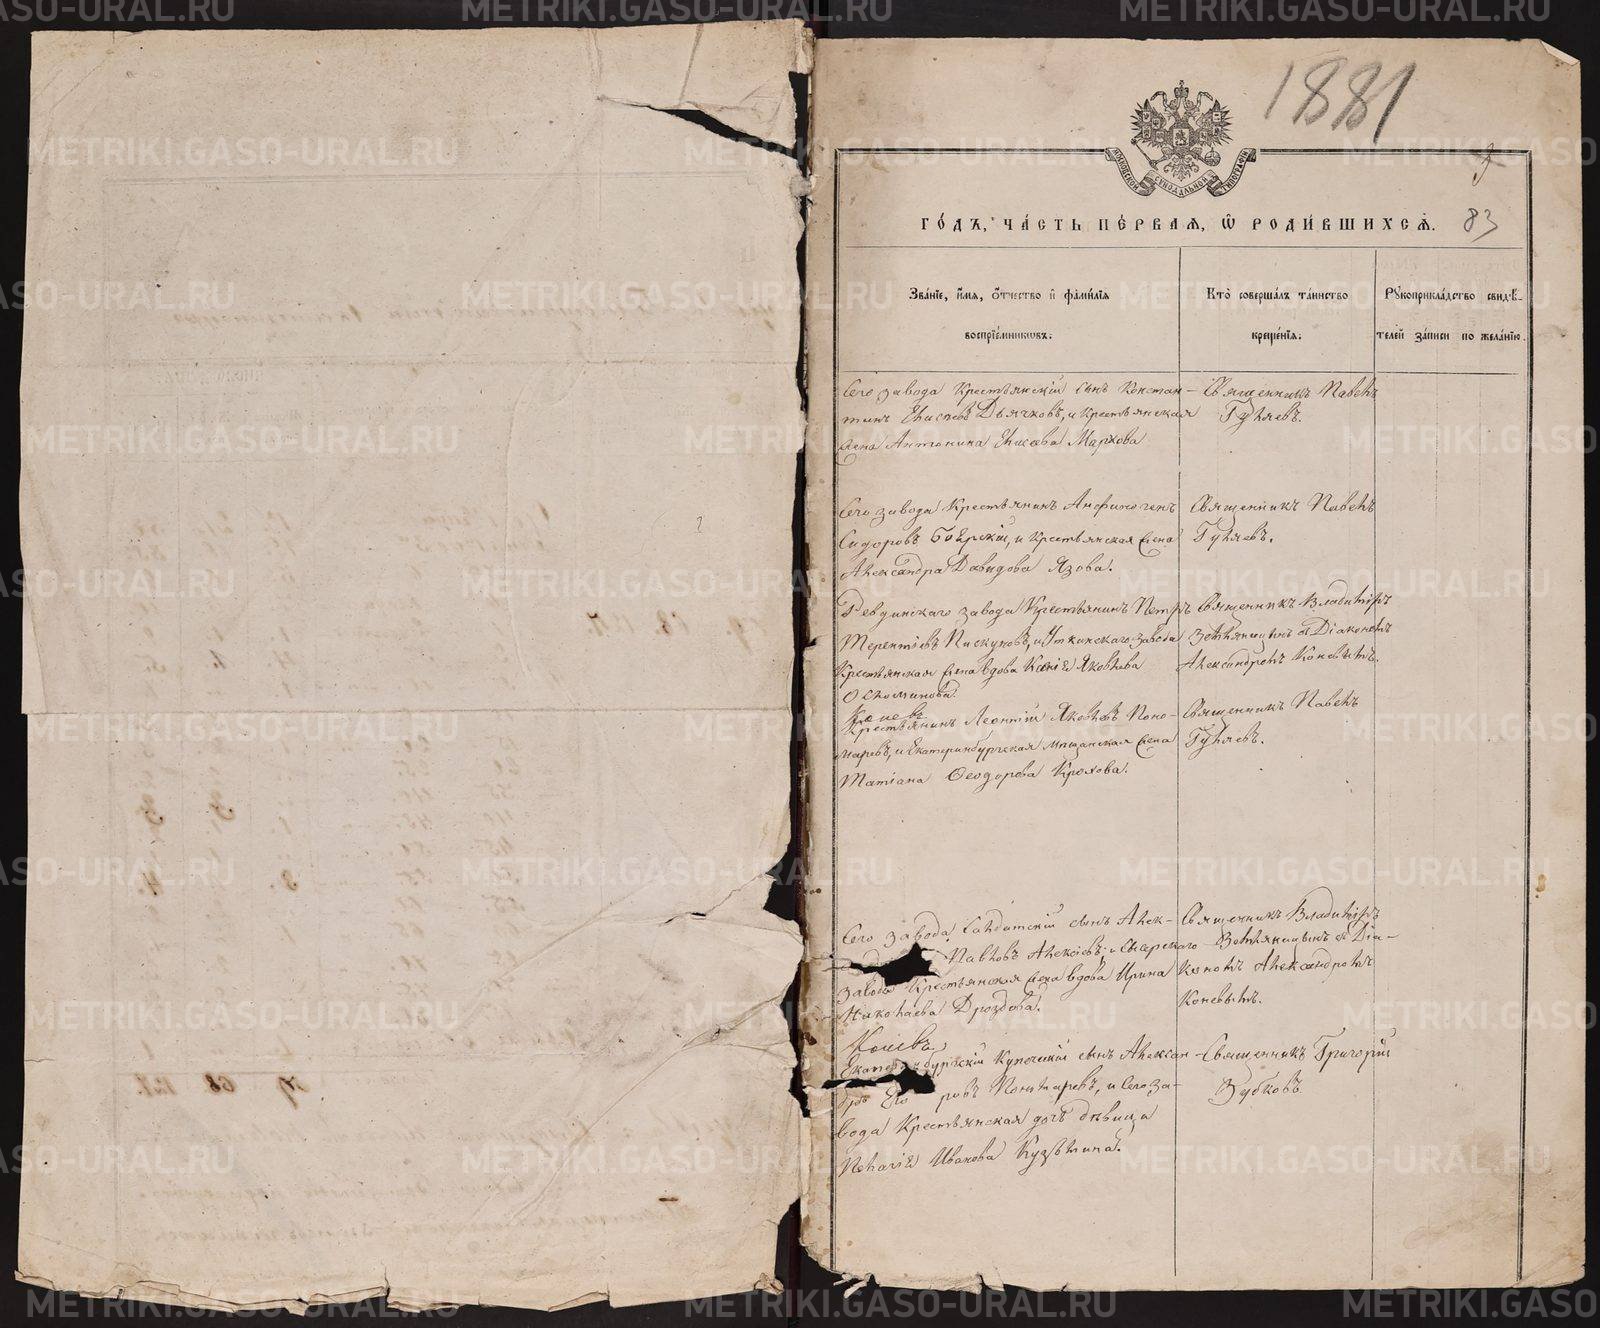 1881
МОСКОВСКОЙ СѴНОДАЛЬНОЙ ТИПОГРАФІИ
ГО́ДЪ, ЧА́СТЬ ПЕ́РВАЯ, Ѡ҆ РОДИ́ВШИХСЯ.
83
Зва́нїе, и҆́мя, ѻ҆́тчество и҆ фами́лїя воспрїе́мникѡвъ.
Кто̀ соверша́лъ та́инство креще́нїя.
Рꙋкоприкла́дство свидѣ́телей за́писи по жела́нїю.
Сего завода Крестьянскій сынъ Констан-
тинъ Елисѣевъ Дьячковъ, и крестьянская
жена Антонина Елисеева Мархова
Священникъ Павелъ
Гуляевъ.
Сего завода Крестьянинъ Анфиногенъ
Сидоровъ Боярскій, и крестьянская жена
Александра Давидова Язова.
Священникъ Павелъ
Гуляевъ.
Ревдинскаго завода Крестьянинъ Петръ
Терентіевъ Пискуновъ, и Уткинскаго завода
Крестьянская жена вдова Ксенія Яковлева
Оскоминова.
Священникъ Владиміръ
Земляницынъ съ Діакономъ
Александромъ Коневымъ.
Крестьянинъ Леонтій Яковлевъ Поно-
маревъ, и Екатеринбургская мѣщанская жена
Татіана Ѳеодорова Крохова.
Священникъ Павелъ
Гуляевъ.
Сего завода Солдатскій сынъ Алек-
Павловъ Алексѣевъ, и Сысерскаго
завода Крестьянская жена вдова Ирина
Николаева Дроздова.
Священникъ Владиміръ
Земляницынъ съ Діа-
кономъ Александромъ
Коневымъ.
Екатеринбургскій Купеческій сынъ Алексан-
дръ Его ровъ Пономаревъ, и Сего за-
вода Крестьянская дочь дѣвица
Пелагія Иванова Кузьмина.
Священникъ Григорій
Зубковъ.
METRIKI.GASO-URAL.RU